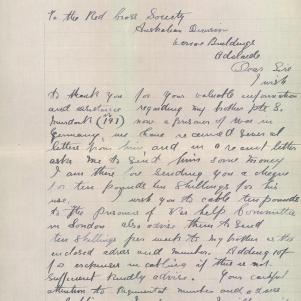 To the Red Cross Society
Australian Division
Verco Buildings
Adelaide
Dear Sir
I wish
to thank you for your valuable information
and assistance regarding my brother Pte S.
(No 191) now a prisoner of War in
Germany, we have received several
letters from him, and in a recent letter
asks me to send him some money
I am there for sending you a cheque
for ten pounds ten shillings for his
use. I wish you to cable ten pounds
to the Prisoner of War help Committee
in London also advise them to send
ten shillings per week to my brother as the
enclosed adres and number. Adding 10/
to expenses in cabling if this is not
sufficient kindly advise. Your careful
attention to Regimental number and